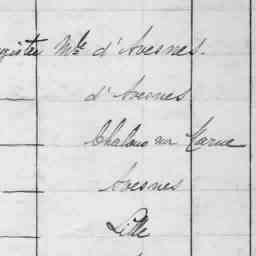 Mle d'Avesnes.
d'Avesnes
Chalons sur Marne
Avesnes
Lille